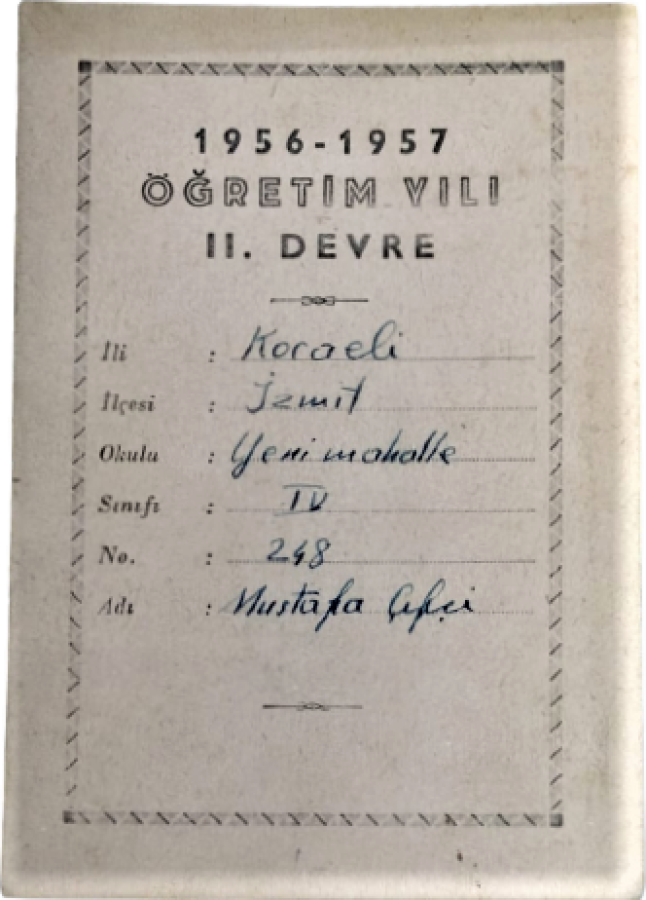 1956-1957
ÖĞRETİM YILI
II. DEVRE
İli : Kocaeli
İlçesi : İzmit
Okulu : Yenimahalle
Sınıfı : IV
No. : 248
Adı : Mustafa